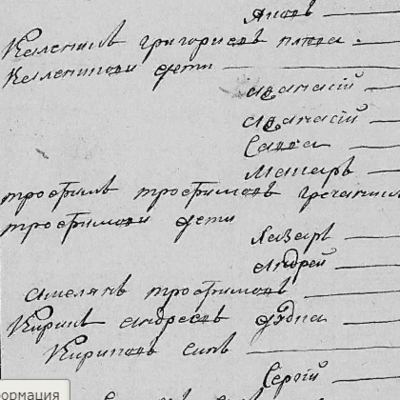 Яковъ
Каленикъ григориевъ плюта
Калениковы дети
афанасій
афанасій
Савка
Макаръ
трофимъ трофимовъ гречаник
трофимови дети
Лазаръ
андрей
амелянъ трофимовъ
Кирилъ андреевъ дудка
Кириловъ синъ
Сергій
формация